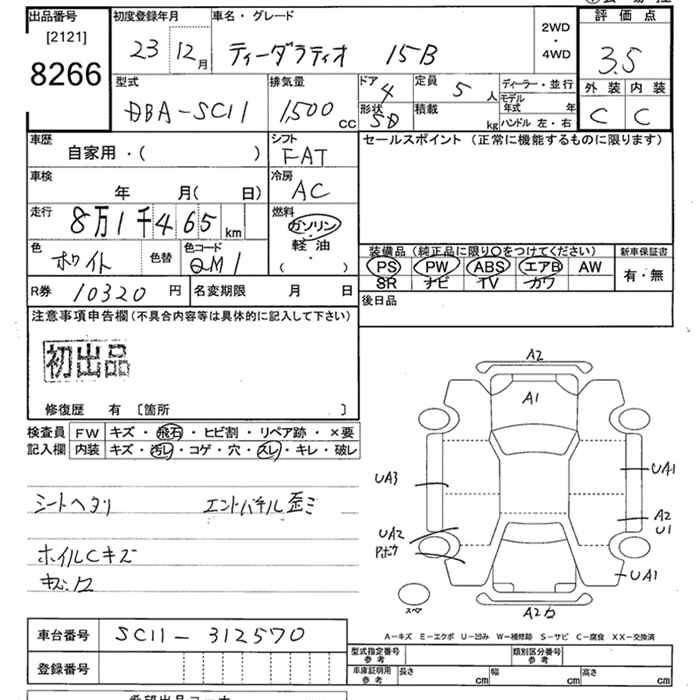 出品番号 初度登録年月 車名・グレード 評価点
[2121] 23 12月 ティーダラティオ 15B 2WD・4WD 3.5
8266
型式 排気量 ドア 定員 ディーラー・並行 外装 内装
DBA-SC11 1,500 CC 4 5人 モデル年式 年 C C
形状 SD 積載 kg ハンドル 左・右
車歴 シフト セールスポイント (正常に機能するものに限ります)
自家用・( ) FAT
車検 冷房
年 月( 日) AC
走行 燃料
8万1千465 km ガソリン・軽油・( )
色 ホワイト 色替 色コード QM1
装備品 (純正品に限り○をつけてください) 新車保証書
PS PW ABS エアB AW 有・無
SR ナビ TV カワ
R券 10320円 名変期限 月 日 後日品
注意事項申告欄(不具合内容等は具体的に記入して下さい)
初出品
修復歴 有 〔箇所 〕
検査員記入欄 FW キズ・飛石・ヒビ割・リペア跡・×要
内装 キズ・汚レ・コゲ・穴・スレ・キレ・破レ
シートヘタリ エンドパネル歪ミ
ホイルCキズ
A2
A1
UA3 UA1
UA2 A2
U1
UA1
スペア
車台番号 SC11-312570
登録番号
A-キズ E-エクボ U-凹み W-補修跡 S-サビ C-腐食 XX-交換済
型式指定番号 参考 類別区分番号 参考
車庫証明用 参考 長さ cm 幅 cm 高さ cm